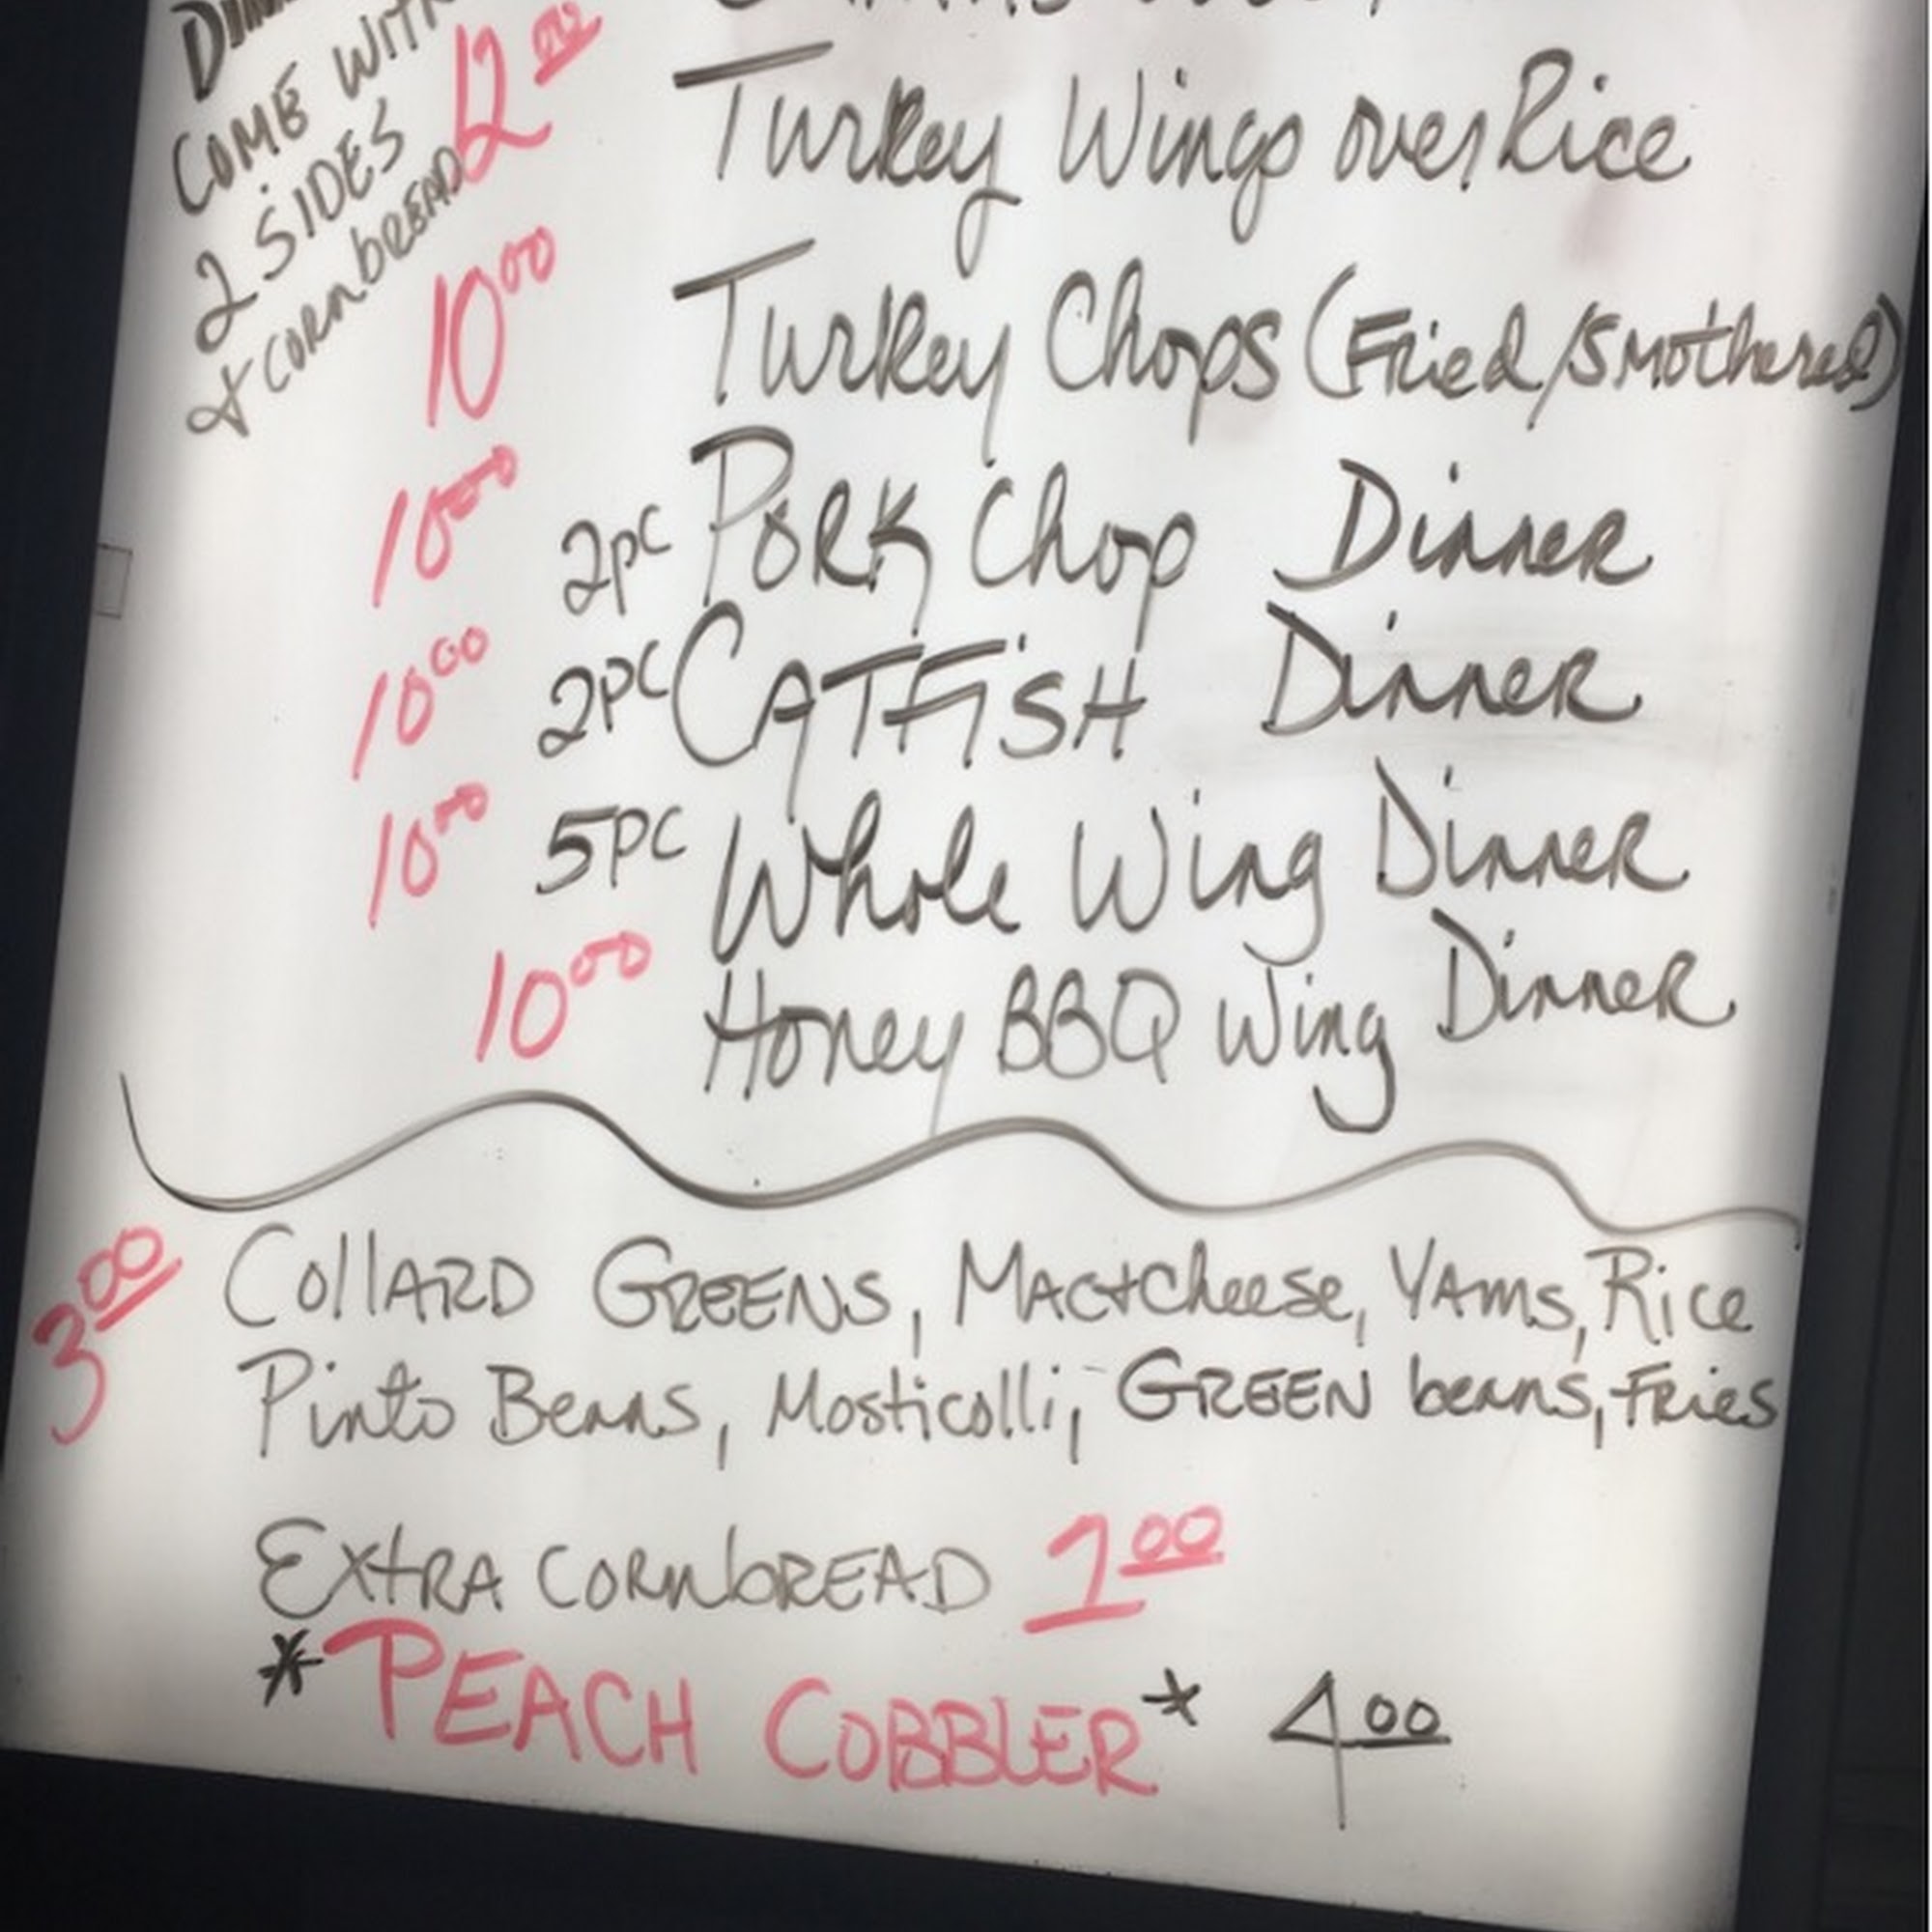 COME WITH
2 SIDES
& CORNbREAD
12.00 Turkey Wings over Rice
10.00 Turkey Chops (Fried/Smothered)
10.00 2pc PORK Chop Dinner
10.00 2pc CATFiSH Dinner
10.00 5pc Whole Wing Dinner
10.00 Honey BBQ Wing Dinner
3.00 Collard GREENS, Mac+Cheese, YAms, Rice
Pinto Beans, Mosticolli, GREEN beans, Fries
EXtRA CORNbREAD 1.00
*PEACH COBBLER* 4.00